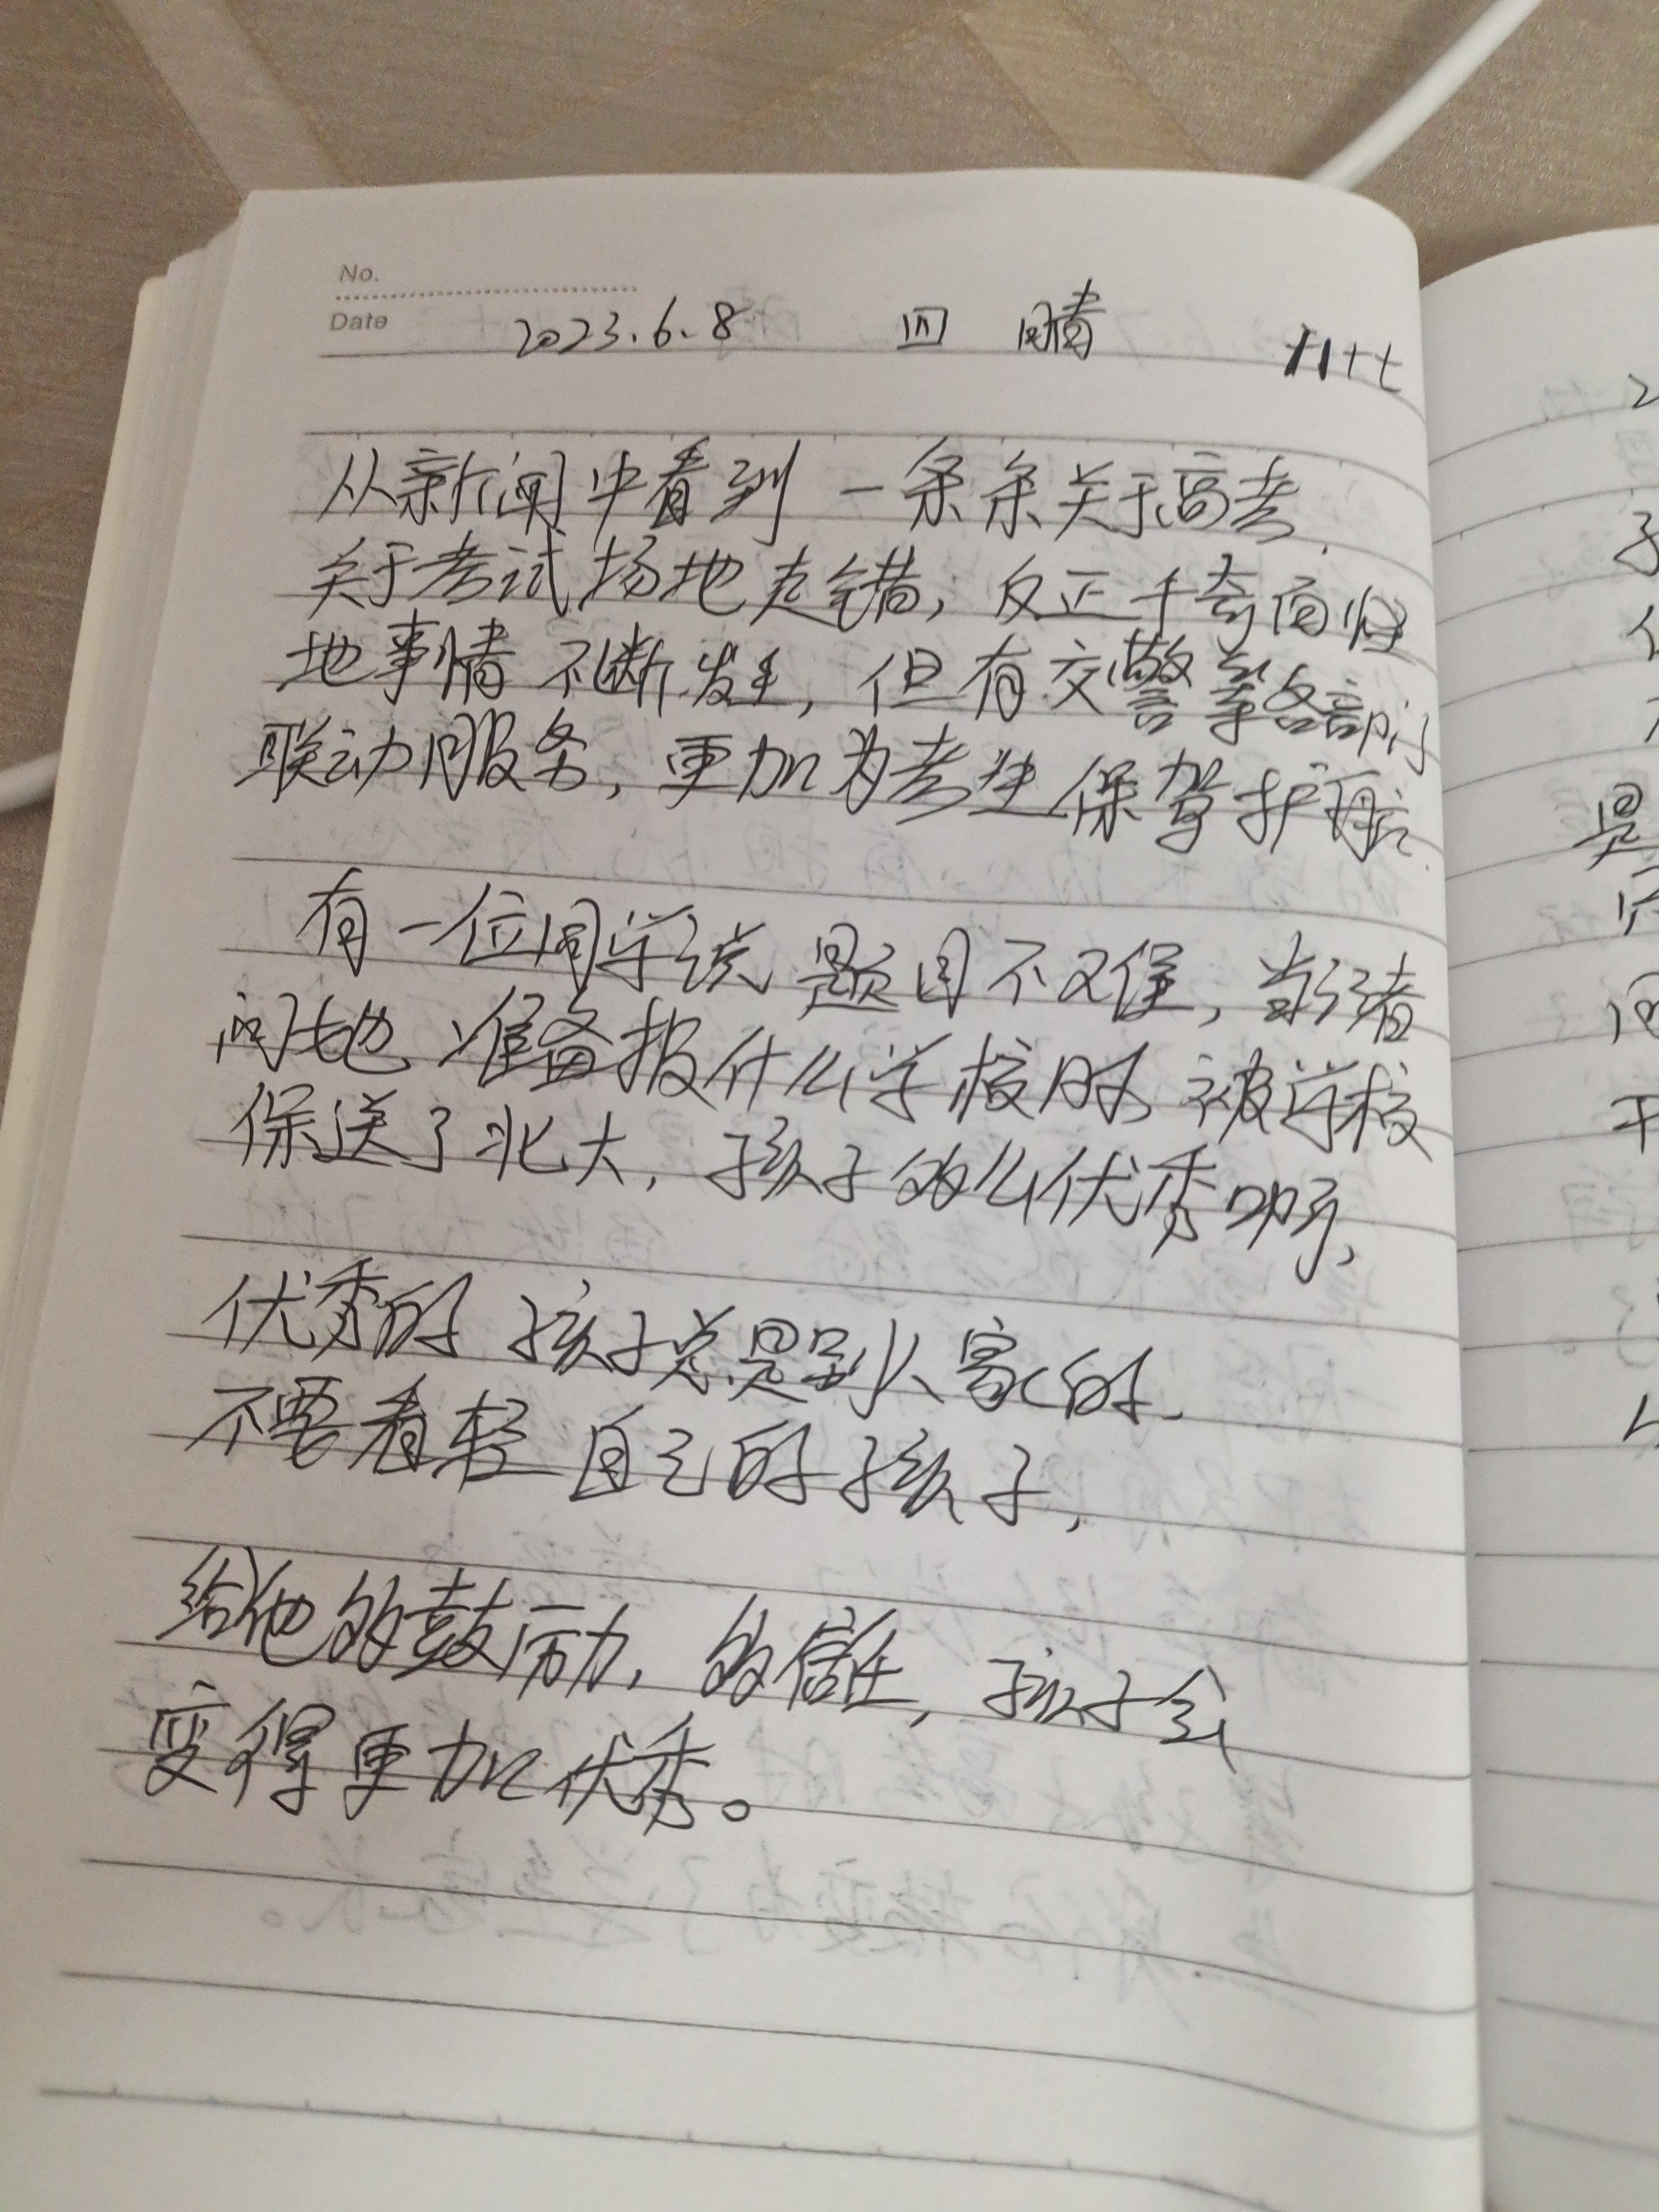 No.
Date 2023.6.8 四 晴
从新闻中看到一条条关于高考,
关于考试场地走错,反正千奇百怪
地事情不断发生,但有交警等各部门
联动服务,更加为考生保驾护航.
有一位同学说题目不难,当记者
问她准备报什么学校时,被学校
保送了北大,孩子多么优秀啊,
优秀的孩子总是别人家的.
不要看轻自己的孩子,
给他多鼓励,多信任,孩子会
变得更加优秀。